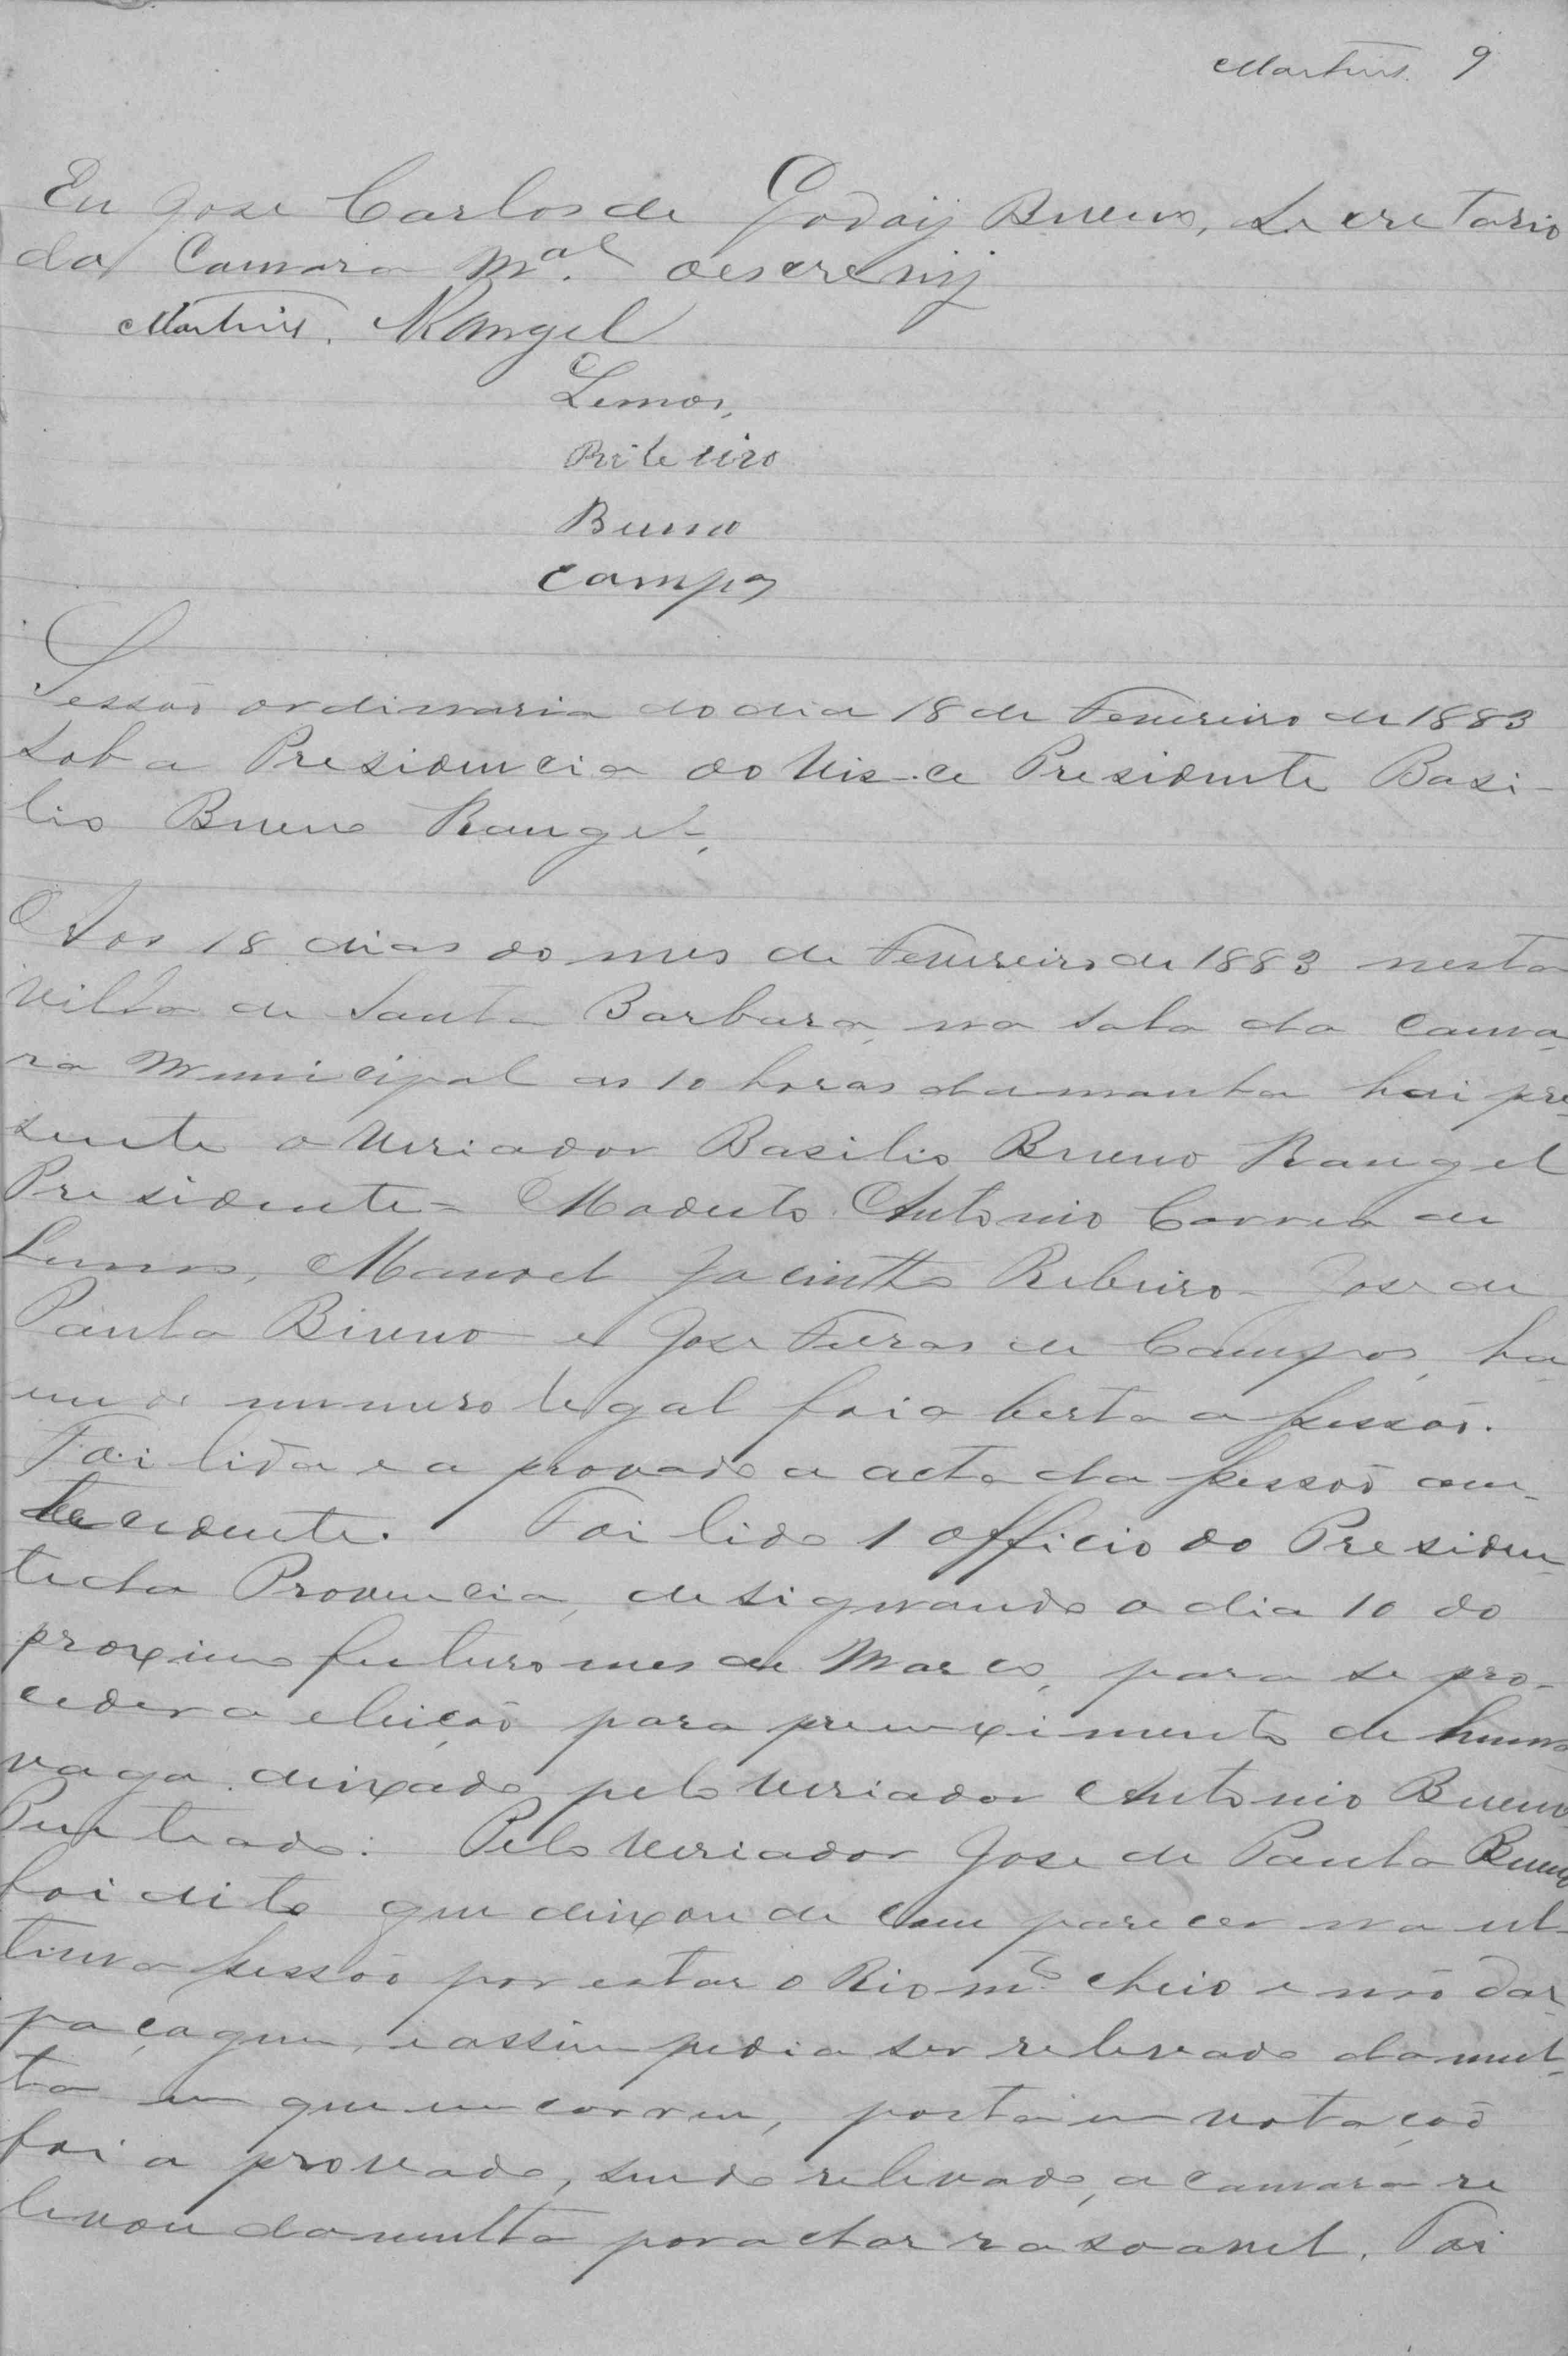 Martins. 9
Eu Jose Carlos de Godoij Bueno, Secretario
da Camara M.al oescrevij
Martins. Rangel
Lemos,
Ribeiro
Bueno
Campos
Sessaõ ordinaria do dia 18 de Fevereiro de 1883
sob a Presidencia do Vis-ce Presidente Basi-
lio Bueno Rangel,
Aos 18 dias do mes de Fevereiro de 1883 nesta
Villa de Santa Barbara, na sala da Cama,
ra Municipal as 10 horas damanha hai pre
sente o Veriador Basilio Bueno Rangel
Presidente = Modesto Antonio Correa de
Lemos, Manoel Jacintho Ribeiro - Jose de
Paula Bueno e Jose Ferras de Campos, ha
vendo numero legal foi aberta a sessaõ.
Foi lida e a provado a acta da sessaõ an-
tecedente. Foi lido 1 officio do Presiden
teda Provencia, designando o dia 10 do
proximo futuro mes de Marco, para se pro-
ceder a eleiçaõ para preenximento de huma
vaga deixado pelo Veriador Antonio Bueno
Penteado. Pelo Veriador Jose de Paula Bueno
foi dito que deixou de Com parecer na ul-
tima sessaõ por estar o Rio m.to cheio e naõ dar
paçagem, eassim pedia ser relevado damul-
ta em que encorreu, posta em votaçaõ
foi a provado, sendo relevado, a Camara re
levou damulta por achar rasoavel. Foi